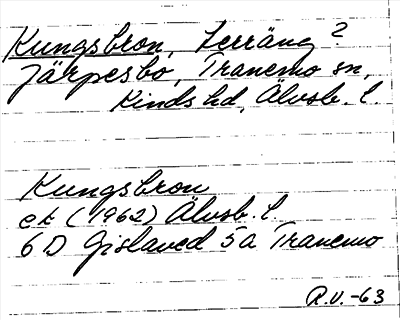 Kungsbron, Terräng?
Järpesbo, Tranemo sn,
Kinds hd, Älvsb. l.
Kungsbron
ek (1962) Älvsb. l.
6D Gislaved 5a Tranemo
R.V.-63